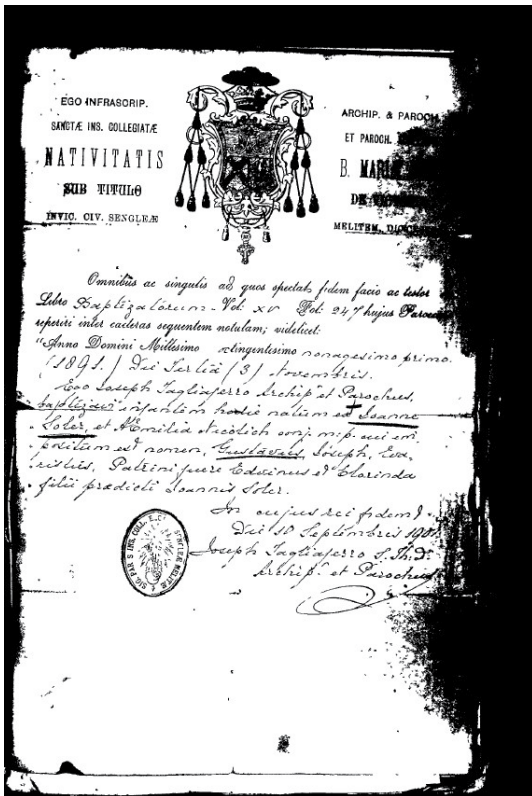 EGO INFRASCRIP.
SANCTÆ INS. COLLEGIATÆ
NATIVITATIS
SUB TITULO
INVIC. CIV. SENGLEÆ
ARCHIP. & PAROCH.
ET PAROCH.
B. MARIÆ
DE
MELITEN. DIOC
Omnibus ac singulis ad quos spectat, fidem facio ac testor
Libro Baptizatorum - Vol: XV Fol: 247 hujus Paroec
reperiri inter cæteras sequentem notulam; videlicet:
"Anno Domini Millesimo octingentesimo nonagesimo primo.
(1891.) Die Tertia (3) Novembris.
Ego Joseph Tagliaferro Archip. et Parochus,
baptizavi infantem hodie natum ex Joanne
Soler, et Æmilia Nicolich conj. cui im
positum est nomen, Gustavus, Joseph, Eva
ristus. Patrini fuere Edvinus et Clorinda
filii prædicti Joannis Soler.
In cujus rei fidem
Die 10 Septembris
Joseph Tagliaferro S. Th. D.
Archip. et Parochus